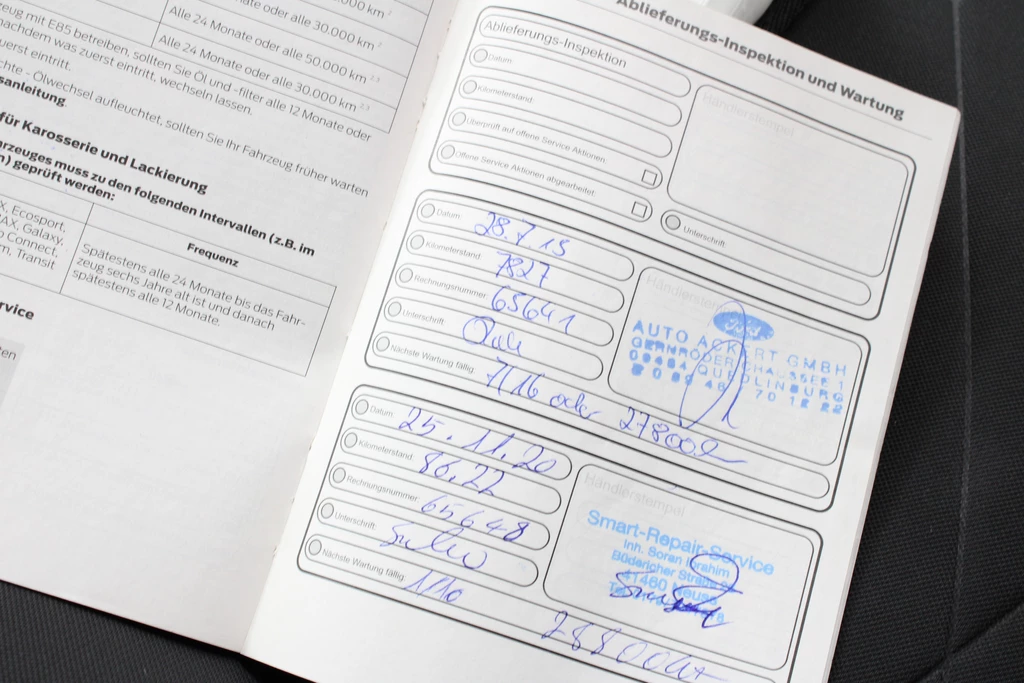 000 km ²
nate oder alle 30.000 km ²
Alle 24 Monate oder alle 30.000 km ²
Alle 24 Monate oder alle 50.000 km ²·³
Alle 24 Monate oder alle 30.000 km ²·³
zeug mit E85 betreiben, sollten Sie Öl und -filter alle 12 Monate oder
nachdem was zuerst eintritt, wechseln lassen.
uerst eintritt.
chte - Ölwechsel aufleuchtet, sollten Sie Ihr Fahrzeug früher warten
sanleitung.
für Karosserie und Lackierung
hrzeuges muss zu den folgenden Intervallen (z.B. im
n) geprüft werden:
Frequenz
X, Ecosport,
AX, Galaxy,
o Connect,
m, Transit
Spätestens alle 24 Monate bis das Fahr-
zeug sechs Jahre alt ist und danach
spätestens alle 12 Monate.
rvice
ten
Ablieferungs-Inspektion und Wartung
Ablieferungs-Inspektion
Datum:
Kilometerstand:
Überprüft auf offene Service Aktionen:
Offene Service Aktionen abgearbeitet:
Händlerstempel
Unterschrift:
Datum: 28 7 15
Kilometerstand: 7827
Rechnungsnummer: 65641
Unterschrift:
Nächste Wartung fällig: 7/16 oder 27800
Händlerstempel
Ford
AUTO ACKERT GMBH
GERNRÖDER CHAUSSEE 1
06484 QUEDLINBURG
70 12 22
Datum: 25.11.20
Kilometerstand: 86,22
Rechnungsnummer: 65648
Unterschrift:
Nächste Wartung fällig:
28800
Händlerstempel
Smart-Repair-Service
Inh. Soran Ibrahim
Büdericher Straße
41460 Neuss